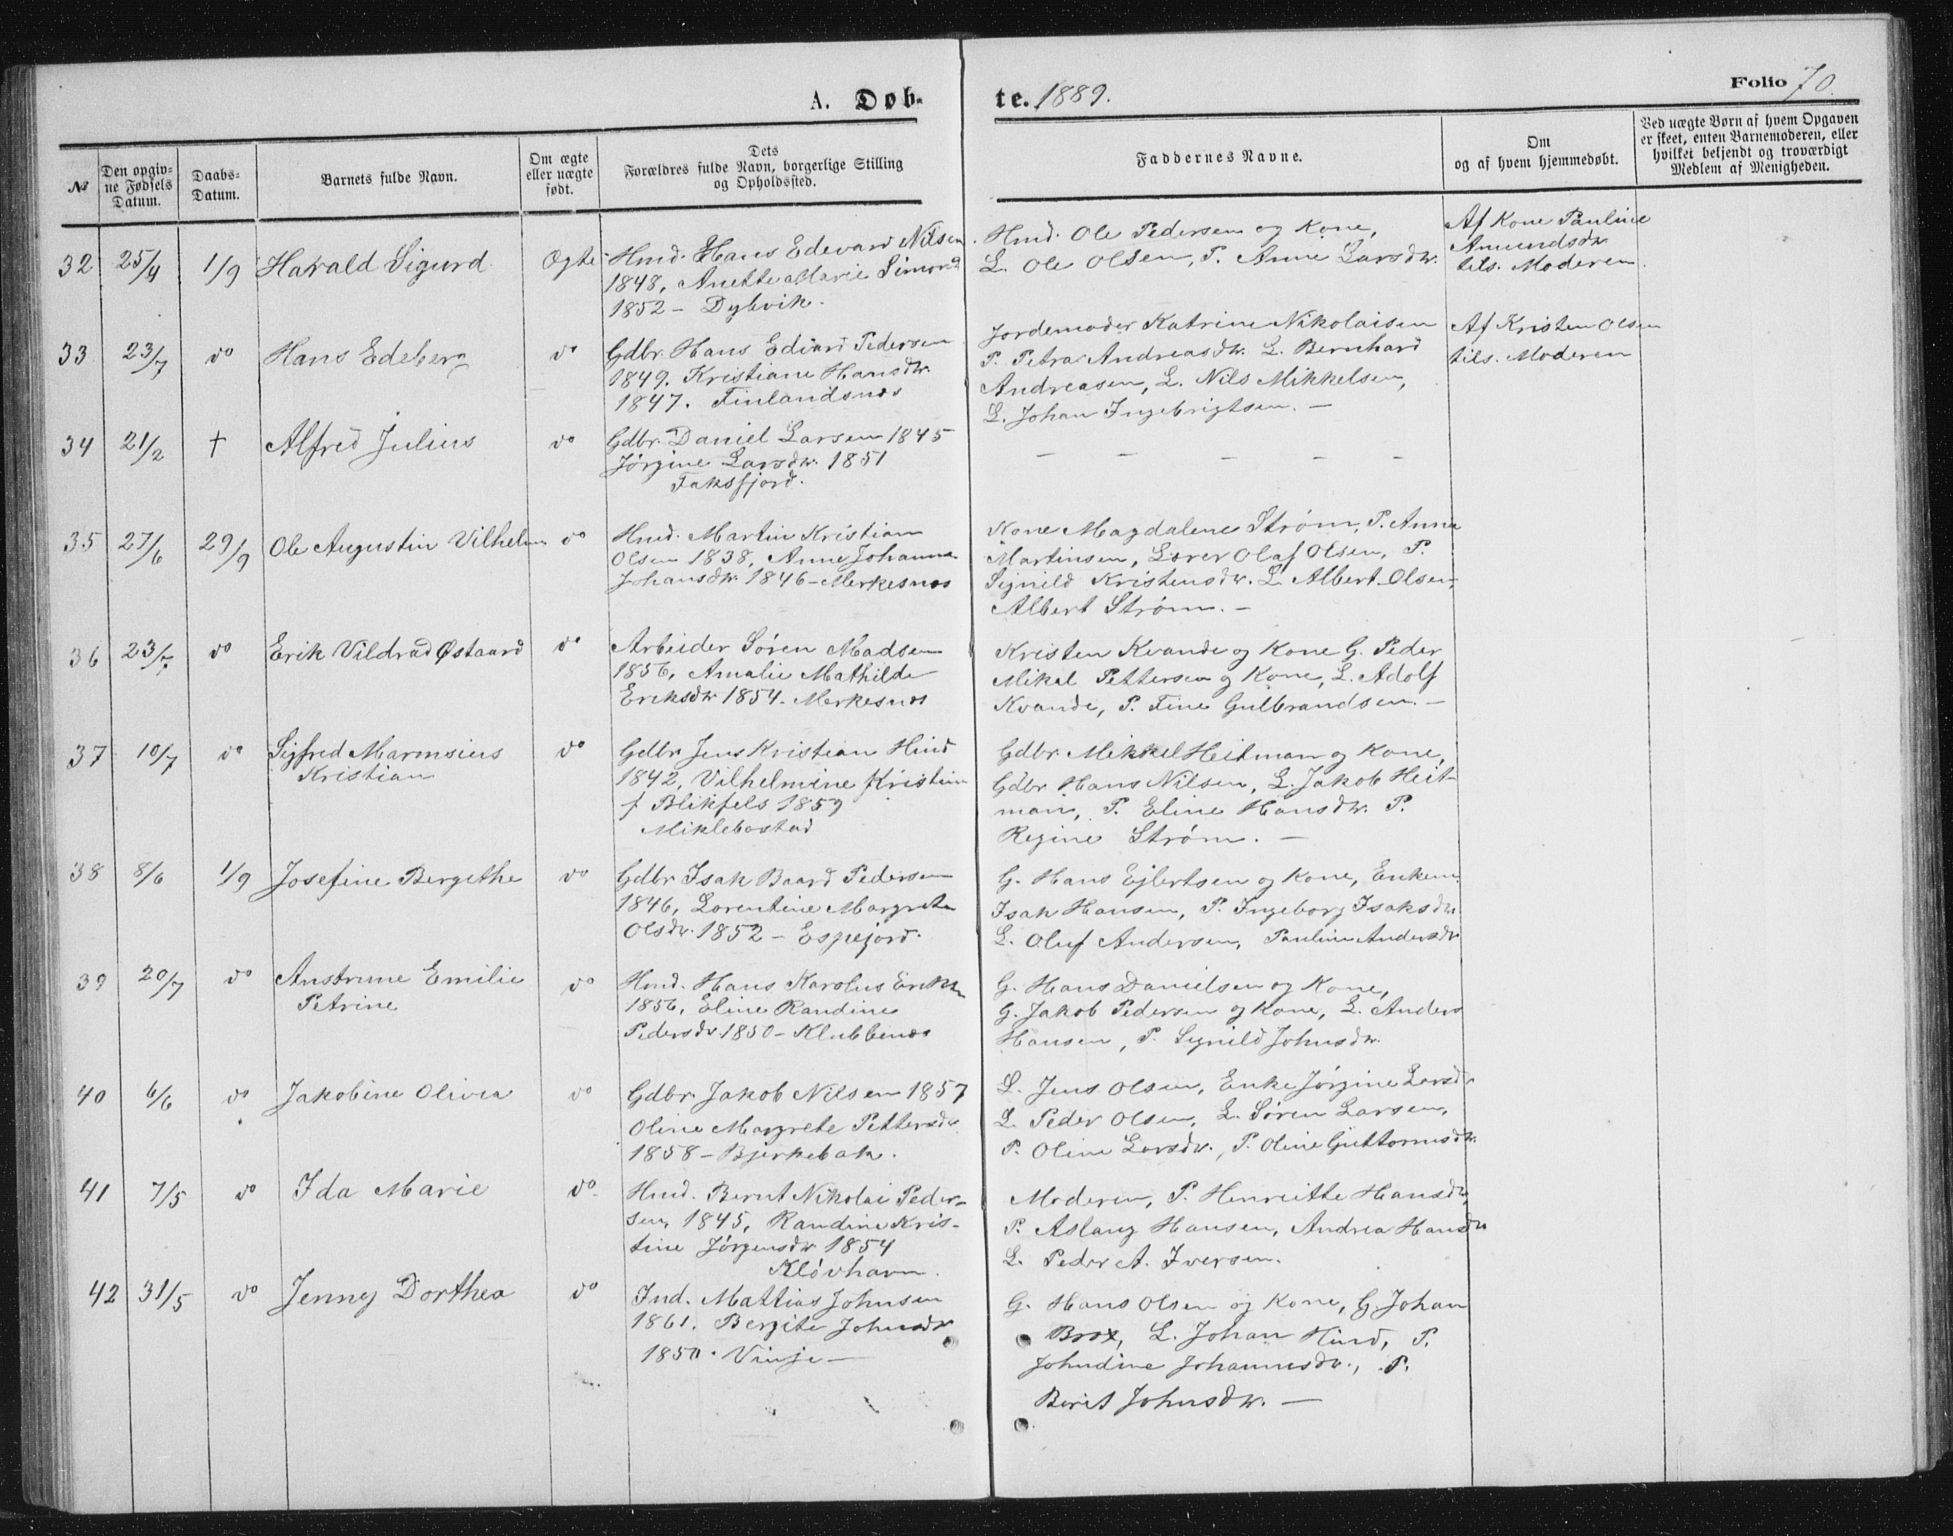 A. Døb-
te. 1889.
Folio 70.
№
Den opgiv-
ne Fødsels
Datum.
Daabs-
Datum.
Barnets fulde Navn.
Om ægte
eller uægte
født.
Dets
Forældres fulde Navn, borgerlige Stilling
og Opholdssted.
Faddernes Navne.
Om
og af hvem hjemmedøbt.
Ved uægte Børn af hvem Opgaven
er skeet, enten Barnemoderen, eller
hvilket bekjendt og troværdigt
Medlem af Menigheden.
32 25/4 1/9 Harald Sigurd Ægte
Hmd. Hans Edevard Nilsen
1848, Anette Marie Simonsd
1852 - Dybvik.
Hmd. Ole Pedersen og Kone,
L. Ole Olsen, P. Anne Larsdtr.
Af Kone Pauline
Amundsdtr
tils. Moderen.
33 23/7 do Hans Edeberg do
Gdbr. Hans Edvard Pedersen
1849. Kristiane Hansdtr.
1847. Finlandsnæs
Jordemoder Katrine Nikolaisen
P. Petra Andreasdtr. L. Bernhard
Andreasen, L. Nils Mikkelsen,
L. Johan Ingebrigtsen. -
Af Kristen Olsen
tils. Moderen
34 21/2 † Alfred Julius do
Gdbr. Daniel Larsen 1845
Jørgine Larsdtr. 1851
Faksfjord.
- - - - -
35 27/6 29/9 Ole Augustin Vilhelm do
Hmd. Martin Kristian
Olsen 1838, Anne Johanna
Johansdtr. 1846 - Merkesnæs
Kone Magdalene Strøm, P. Anna
Martinsen, Lærer Olaf Olsen, P.
Signild Kristensdtr. L. Albert Olsen,
Albert Strøm. -
36 23/7 do Erik Vildrad Østaard do
Arbeider Søren Madsen
1856, Amalie Mathilde
Eriksdtr 1854. Merkesnæs
Kristen Kvande og Kone G. Peder
Mikal Pettersen og Kone, L. Adolf
Kvande, P. Tine Gulbrandsen. -
37 10/7 do Sigfred Marensius do
Kristian
Gdbr. Jens Kristian Hind
1842, Vilhelmine Kristine
f. Blikfels 1859
Miklebostad
Gdbr. Mikkel Heitman og Kone,
Gdbr Hans Nilsen, L. Jakob Heit-
man, P. Eline Hansdtr. P.
Regine Strøm. -
38 8/6 1/9 Josefine Bergithe do
Gdbr Isak Baard Pedersen
1846, Lorentine Margrete
Olsdtr. 1852 - Espejord.
G. Hans Ejlertsen og Kone, Enkem.
Isak Hansen, P. Ingeborg Isaksdtr
L. Oluf Andersen, Pauline Andersdtr
39 20/7 do Anstrune Emilie do
Petrine
Hmd. Hans Karolus Eriksen
1856, Eline Randine
Pedersdtr 1850 - Klubbenæs
G. Hans Danielsen og Kone,
G. Jakob Pedersen og Kone, L. Anders
Hansen, P. Signild Johnsdtr.
40 6/6 do Jakobine Olivia do
Gdbr. Jakob Nilsen 1857
Oline Margrete Pettersdtr.
1858 - Bjerkebak.
L. Jens Olsen, Enke Jørgine Larsdtr
L. Peder Olsen, L. Søren Larsen,
P. Oline Larsdtr., P. Oline Guttormsdtr.
41 7/5 do Ida Marie do
Hmd. Bernt Nikolai Peder-
sen, 1845, Randine Kris-
tine Jørgensdtr 1854
Kløvhavn.
Moderen, P. Henriette Hansdtr,
P. Aslaug Hansen, Andrea Hansdtr
L. Peder A. Iversen.
42 31/5 do Jenny Dorthea do
Ind. Mattias Johnsen
1861. Bergite Johnsdtr
1850. Vinje -
G. Hans Olsen og Kone, G. Johan
Brox, L. Johan Hind, P.
Johndine Johannesdtr., P.
Berit Johnsdtr. -